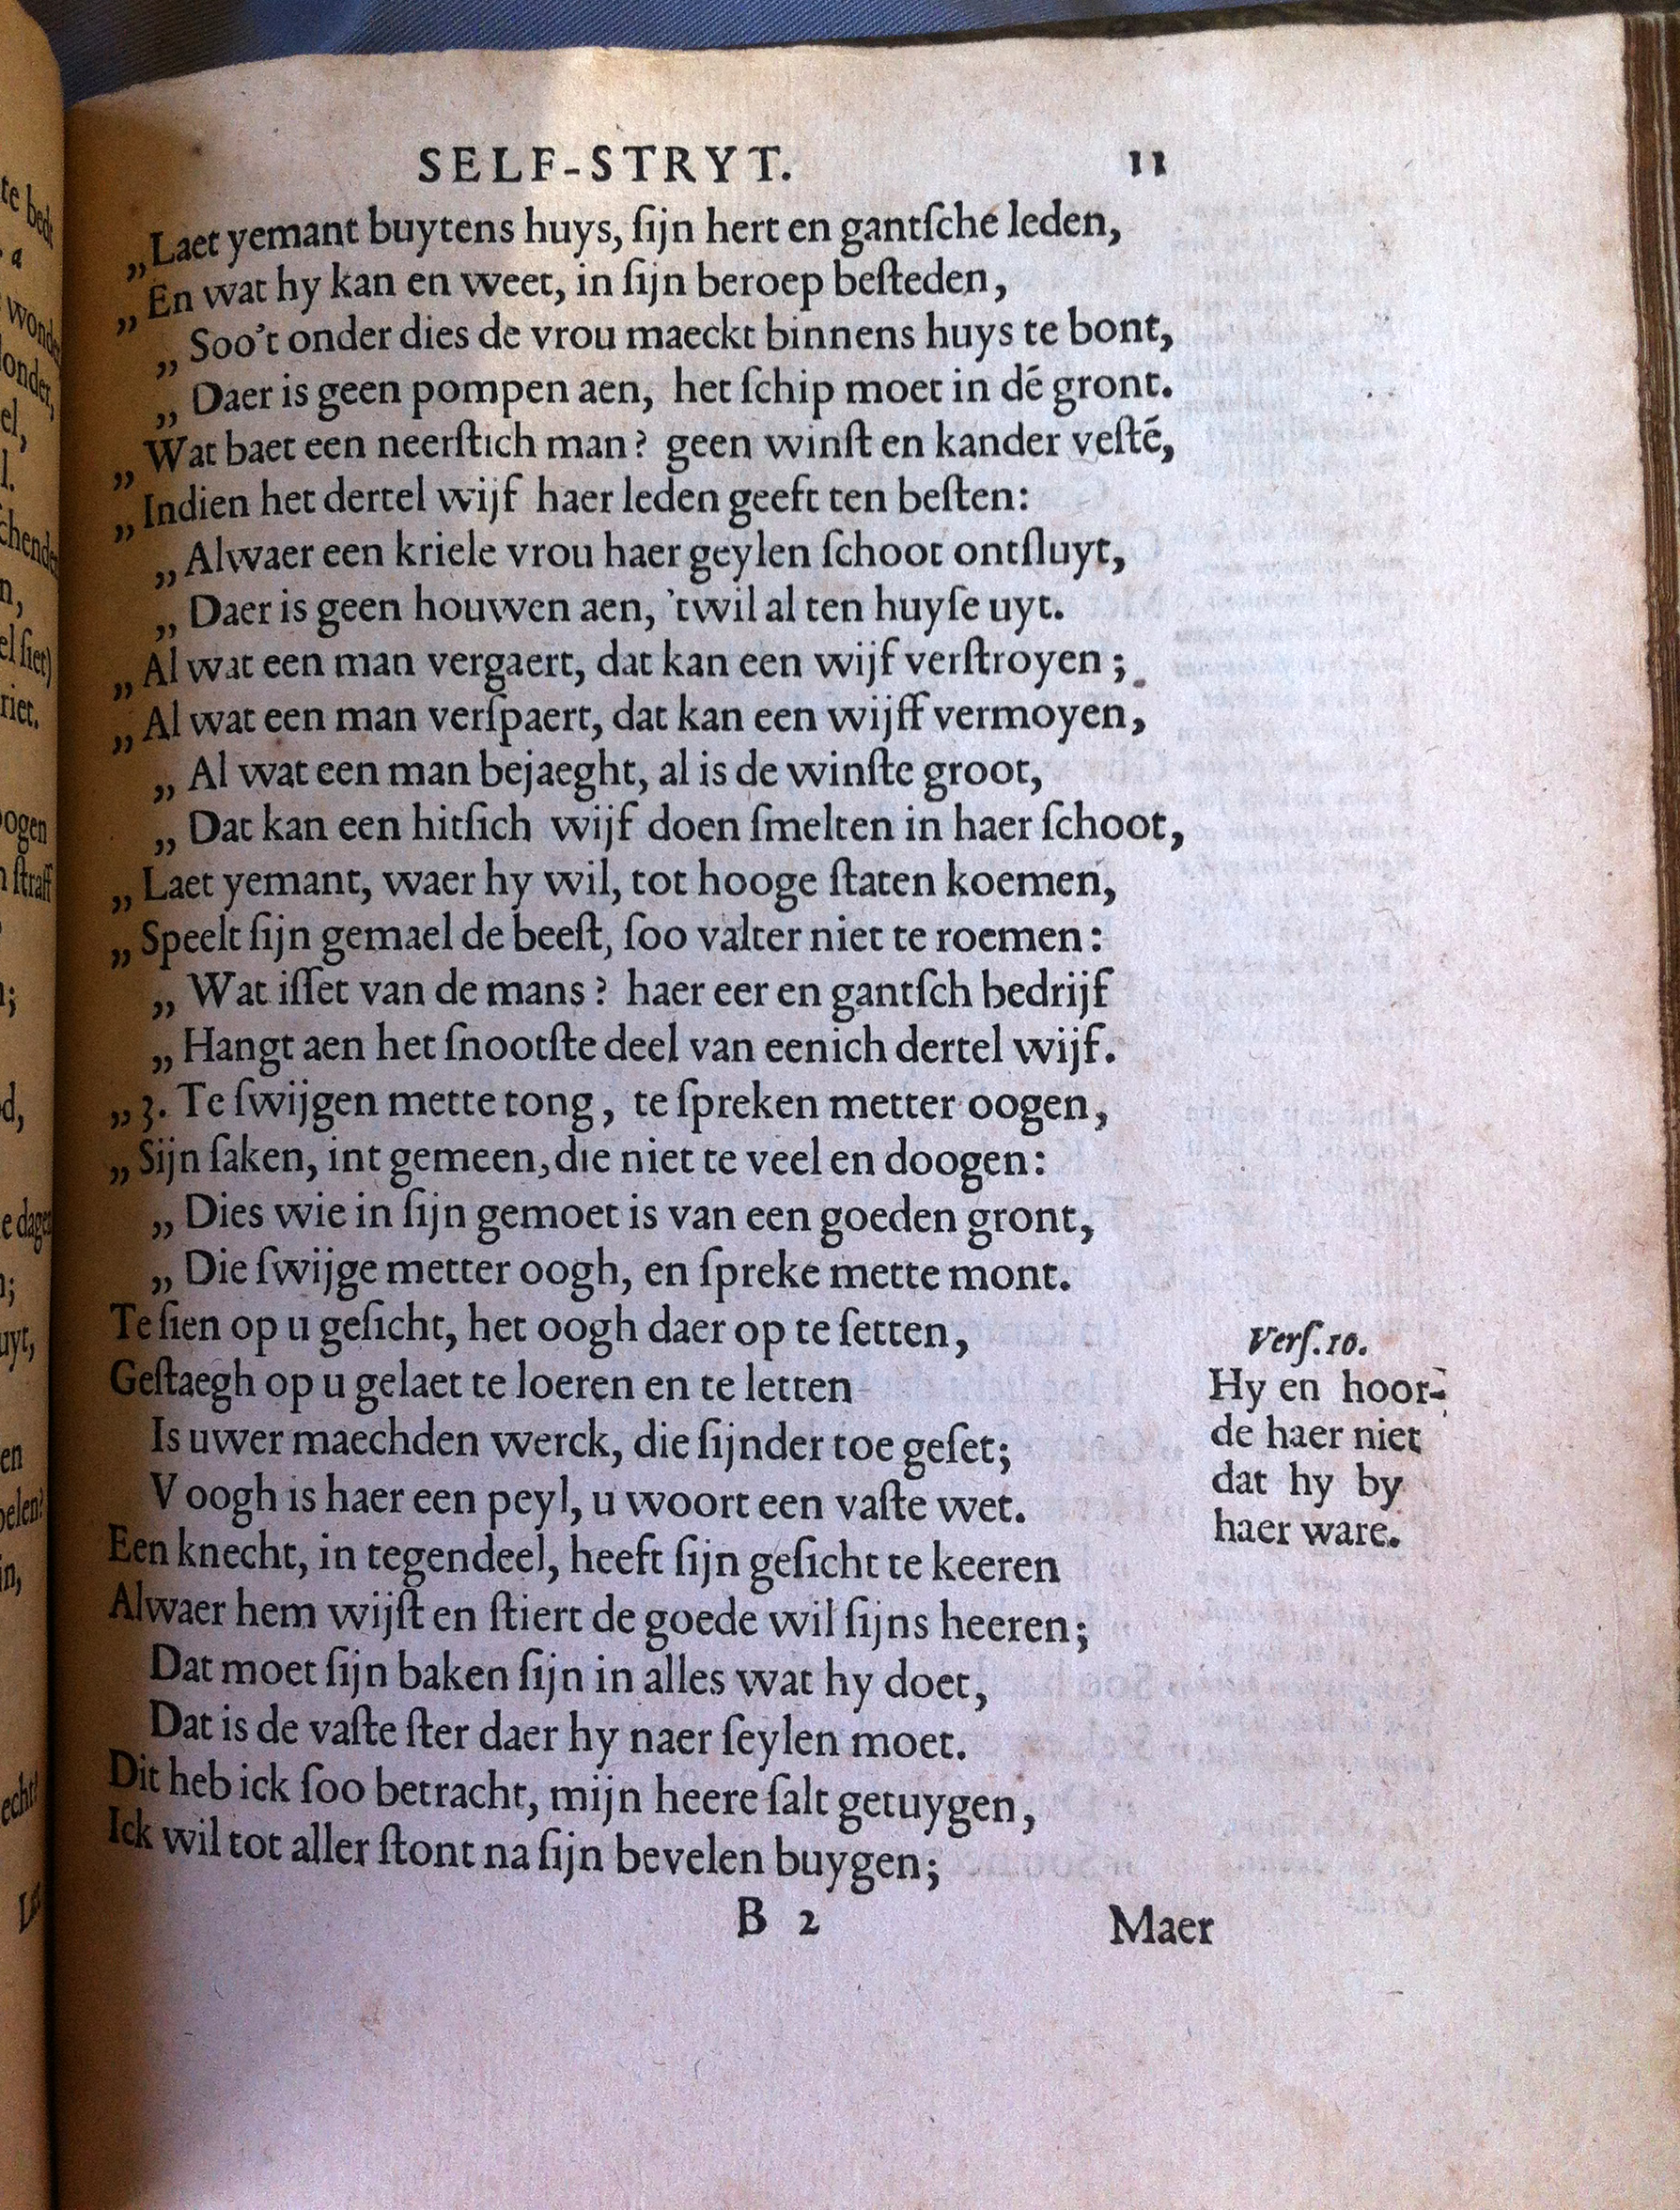 SELF-STRYT. 11
„Laet yemant buytens huys, ſijn hert en gantſche leden,
„En wat hy kan en weet, in ſijn beroep beſteden,
„Soo't onder dies de vrou maeckt binnens huys te bont,
„Daer is geen pompen aen, het ſchip moet in dē gront.
„Wat baet een neerſtich man? geen winſt en kander veſtē,
„Indien het dertel wijf haer leden geeft ten beſten:
„Alwaer een kriele vrou haer geylen ſchoot ontſluyt,
„Daer is geen houwen aen, 'twil al ten huyſe uyt.
„Al wat een man vergaert, dat kan een wijf verſtroyen;
„Al wat een man verſpaert, dat kan een wijff vermoyen,
„Al wat een man bejaeght, al is de winſte groot,
„Dat kan een hitſich wijf doen ſmelten in haer ſchoot,
„Laet yemant, waer hy wil, tot hooge ſtaten koemen,
„Speelt ſijn gemael de beeſt, ſoo valter niet te roemen:
„Wat iſſet van de mans? haer eer en gantſch bedrijf
„Hangt aen het ſnootſte deel van eenich dertel wijf.
„3. Te ſwijgen mette tong, te ſpreken metter oogen,
„Sijn ſaken, int gemeen, die niet te veel en doogen:
„Dies wie in ſijn gemoet is van een goeden gront,
„Die ſwijge metter oogh, en ſpreke mette mont.
Te ſien op u geſicht, het oogh daer op te ſetten,
Geſtaegh op u gelaet te loeren en te letten
Is uwer maechden werck, die ſijnder toe geſet;
V oogh is haer een peyl, u woort een vaſte wet.
Een knecht, in tegendeel, heeft ſijn geſicht te keeren
Alwaer hem wijſt en ſtiert de goede wil ſijns heeren;
Dat moet ſijn baken ſijn in alles wat hy doet,
Dat is de vaſte ſter daer hy naer ſeylen moet.
Dit heb ick ſoo betracht, mijn heere ſalt getuygen,
Ick wil tot aller ſtont na ſijn bevelen buygen;
B 2 Maer
Verſ.10.
Hy en hoor-
de haer niet
dat hy by
haer ware.